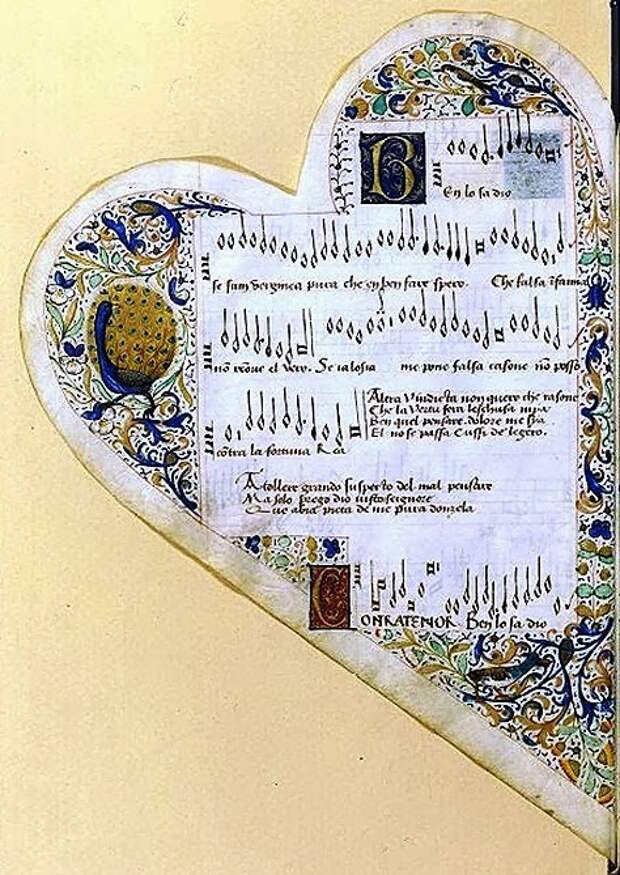 Ben lo sa dio
se sum verginea pura che in pensare spero. Che falsa ifamia
nō coure el vero. Se ialosia me pone falsa casone nō posso
cōtra la fortuna Rea
Altra vindicta non quero che rasone
Che la vertu fera le schusa mya
Ben quel pensare. dolore me
El no se passa Cussi de legero.
A tollere grando suspecto del mal pensare
Ma solo prego dio iusto seignore
Que abia pieta de me pura donzela
CONRATENOR Ben lo sa dio